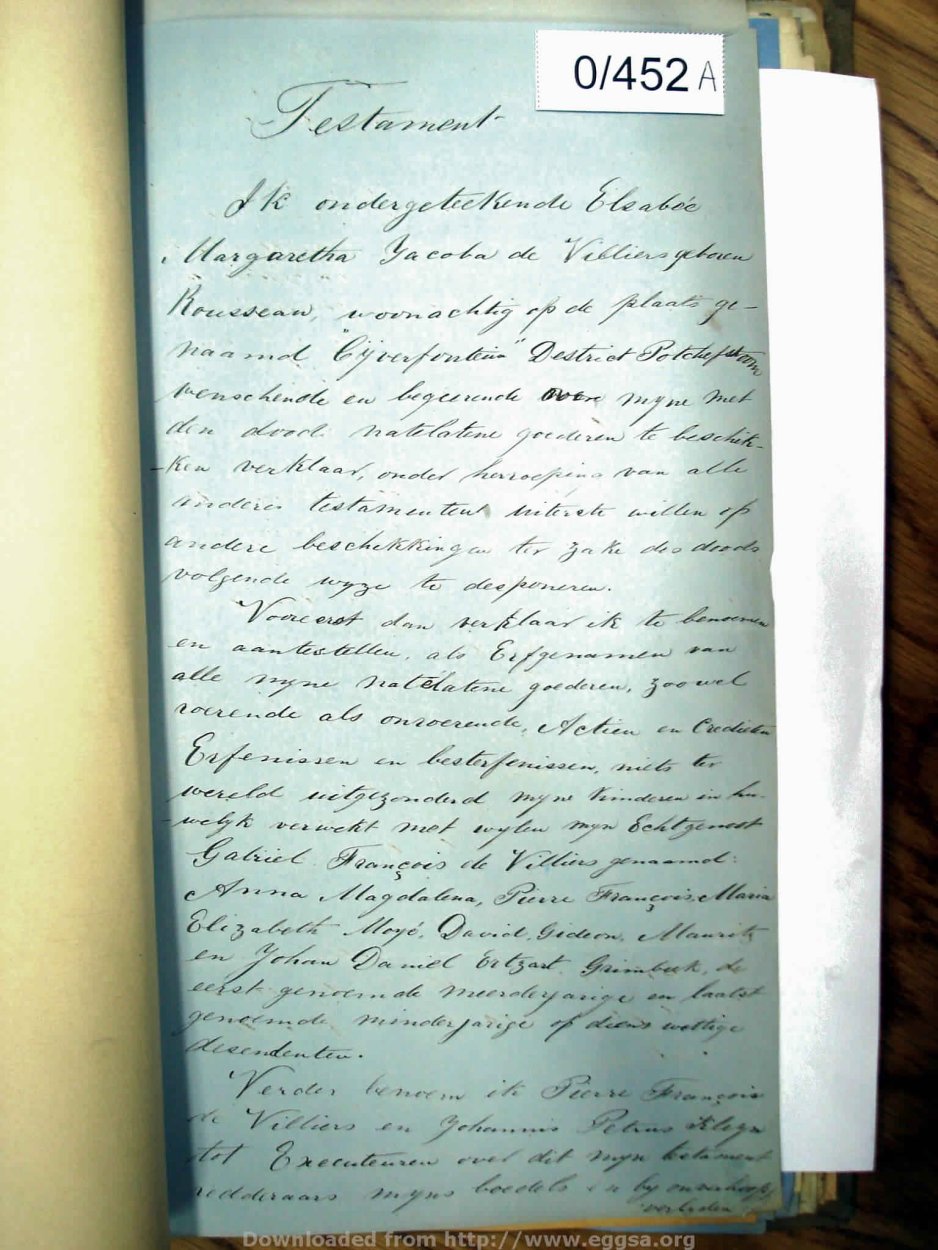 0/452 A
Testament
Ik ondergeteekende Elsabée
Margaretha Jacoba de Villiers geboren
Rousseau, woonachtig op de plaats ge-
naamd "Cijverfontein" District Potchefstroom
wenschende en begeerende over myne met
den dood natelatene goederen te beschik-
-ken verklaar, onder herroeping van alle
andere testamenten uiterste willen of
andere beschikkingen ter zake des doods
volgende wyze te desponeren.
Vooreerst dan verklaar ik te benoemen
en aantestellen, als Erfgenamen van
alle myne natelatene goederen, zoowel
roerende als onroerende, Actien en Credieten
Erfenissen en besterfenissen, niets ter
wereld uitgezonderd myne kinderen in hu-
-welyk verwekt met wylen myn Echtgenoot
Gabriel François de Villiers genaamd:
Anna Magdalena, Pierre François, Maria
Elizabeth Moyé, David, Gideon, Mauritz
en Johan Daniel Grimbeek, de
eerst genoemde meerderjarige en laatst
genoemde minderjarige of diens wettige
desendenten.
Verder benoem ik Pierre François
de Villiers en Johannis Petrus Kleyn
tot Executeuren over dit myn testament
redderaars myns boedels en by onverhoopt
overlyden
Downloaded from http://www.eggsa.org